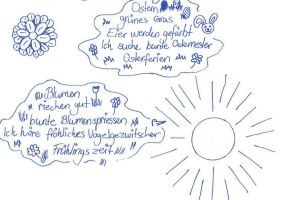 Ostern
grünes Gras
Eier werden gefärbt
Ich suche bunte Osternester
Osterferien
Blumen
riechen gut
bunte Blumen spriessen
Ich höre fröhliches Vogelgezwitscher
Frühlingszeit